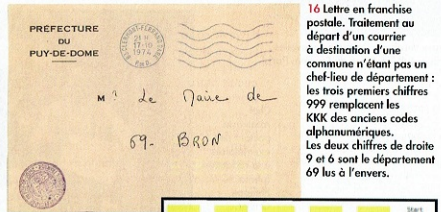 PRÉFECTURE
DU
PUY-DE-DOME
21 H
17-10
1974
P.-DE-D.
M. le Maire de
69- BRON
16 Lettre en franchise
postale. Traitement au
départ d'un courrier
à destination d'une
commune n'étant pas un
chef-lieu de département :
les trois premiers chiffres
999 remplacent les
KKK des anciens codes
alphanumériques.
Les deux chiffres de droite
9 et 6 sont le département
69 lus à l'envers.
Start